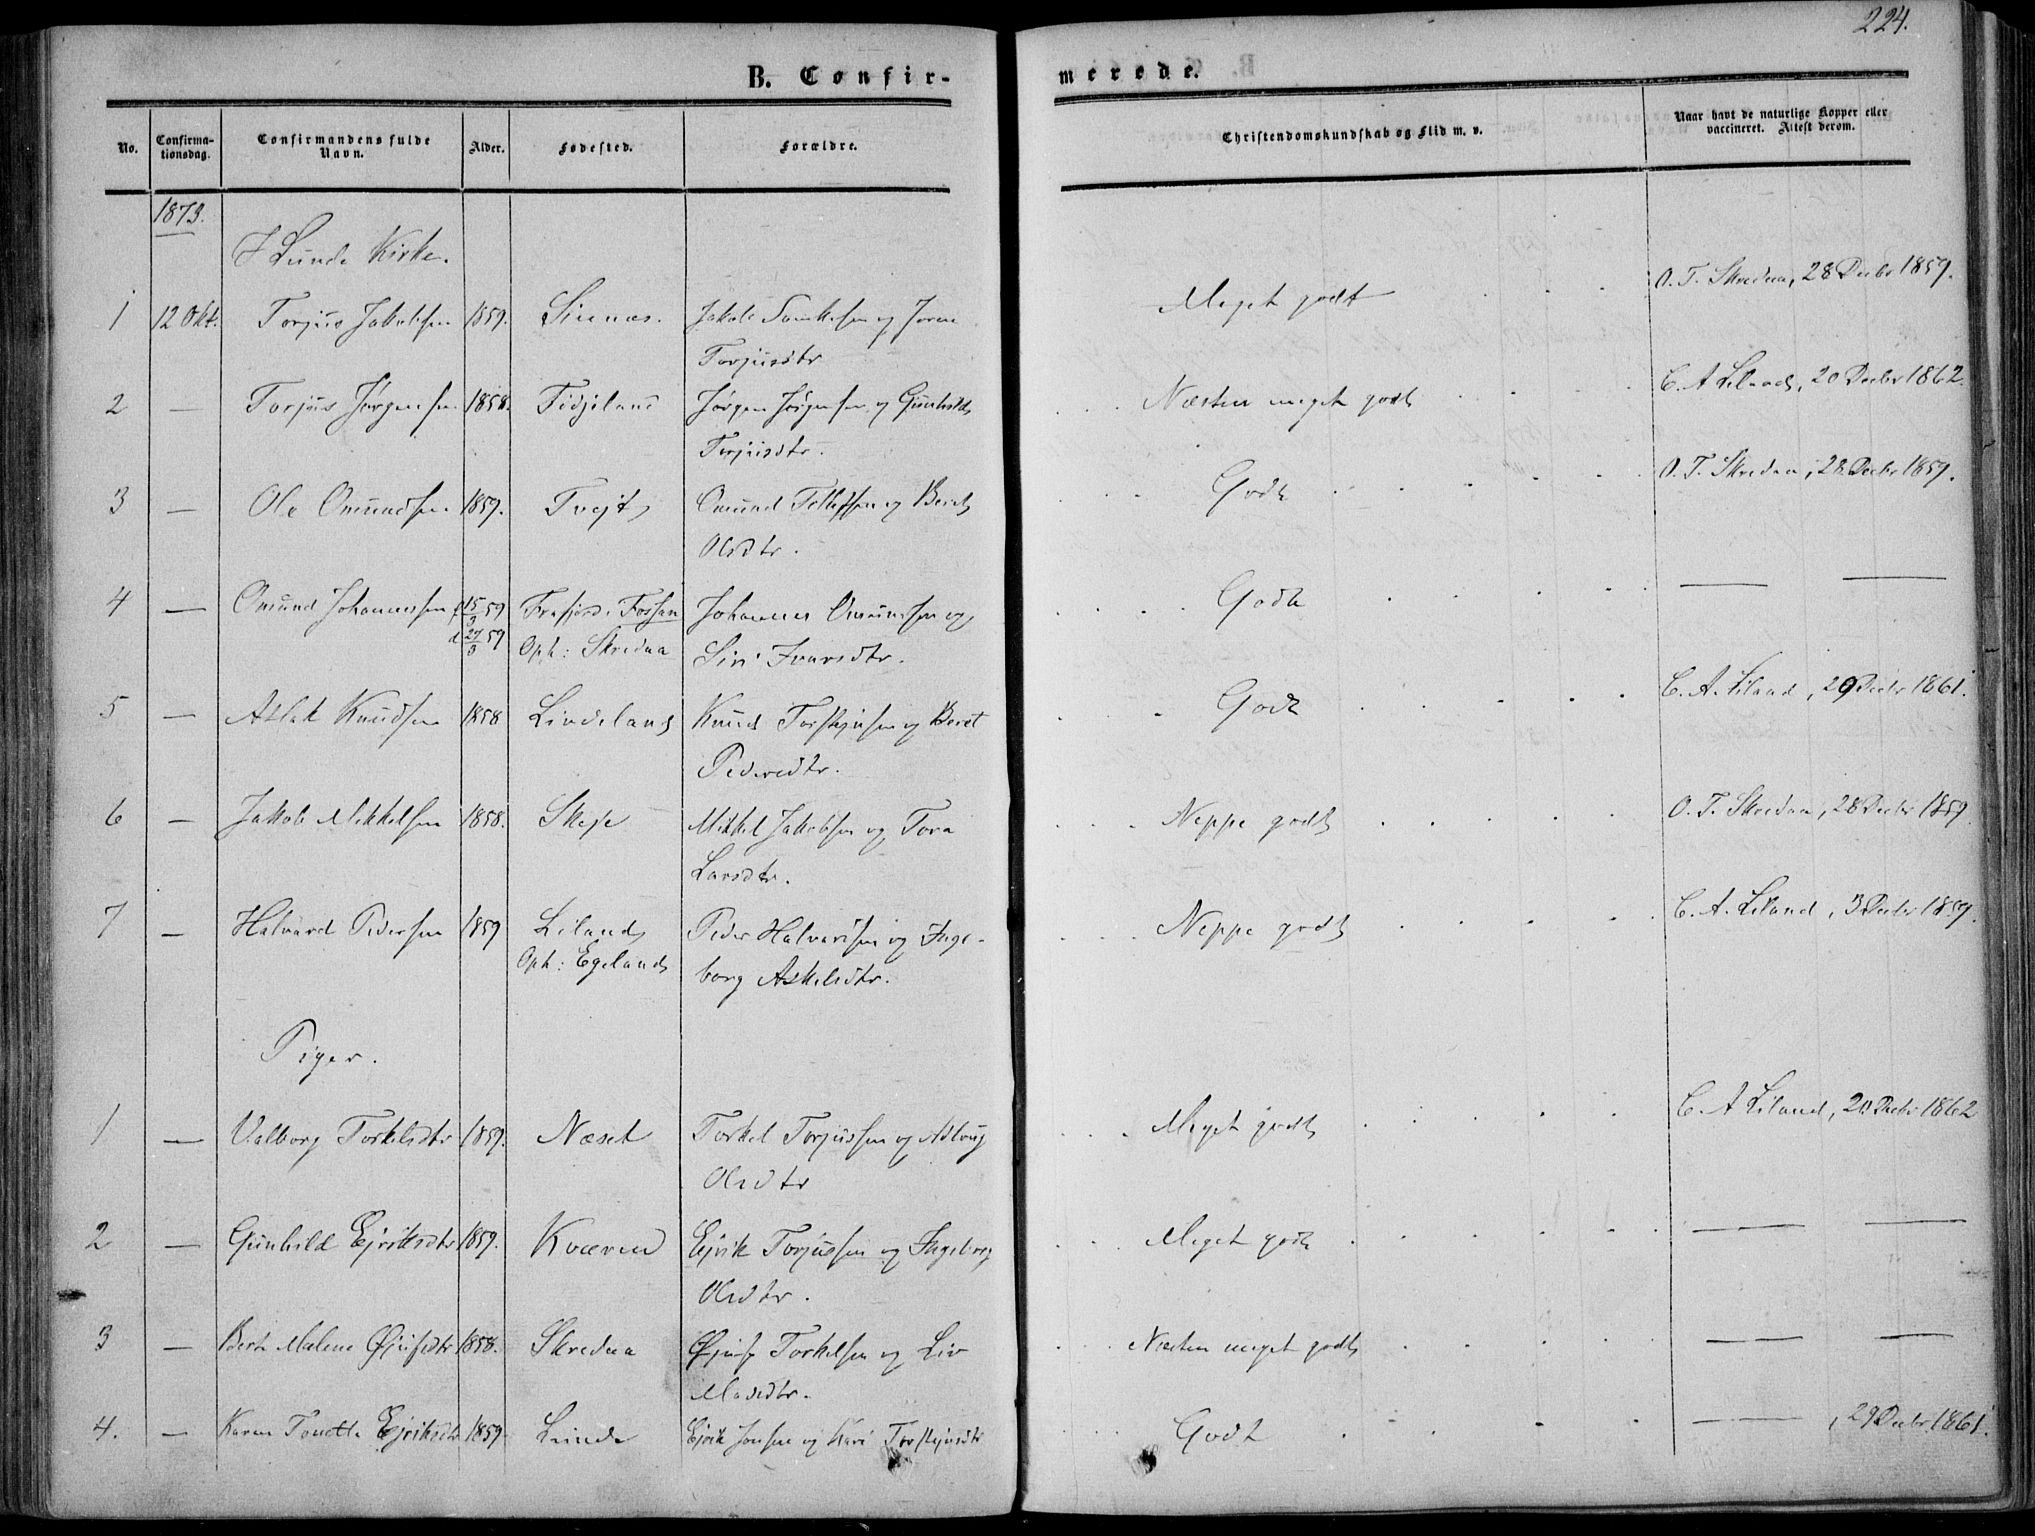 224.
B. Confir-
merede.
No.
Confirma-
tionsdag.
Confirmandens fulde
Navn.
Alder.
Fødested.
Forældre.
Christendomskundskab og Flid m. v.
Naar havt de naturlige Kopper eller
vaccineret. Attest derom.
1873.
I Lunde Kirke.
1 12 Okt. Torjus Jakobsen 1859. Sinnæs. Jakob Samuelsen og Joren Meget godt O. T. Skredaa, 28 Decbr 1859.
Torjusdtr
2 — Torjus Jørgensen 1858. Fidjeland Jørgen Jørgensen og Gunhild Næsten meget godt C. A Liland, 20 Decbr 1862.
Torjusdtr.
3 — Ole Omundsen 1859. Tvejt Omund Tollefsen og Beret Godt O. T. Skredaa, 28 Decbr 1859.
Olsdtr.
4 — Omund Johannessen f 15/3 59 Frafjord i Fossan Johannes Omundsen og Godt — —
d 27/3 59 Oph: Skredaa Siri Ivarsdtr.
5 — Aslak Knudsen 1858 Lindeland Knud Torstejnsen og Beret Godt C. A. Liland, 29 Decbr 1861.
Pedersdtr.
6 — Jakob Mikkelsen 1858. Skeje Mikkel Jakobsen og Tora Neppe godt O. T. Skredaa, 28 Decbr 1859
Larsdtr.
7 — Halvard Pedersen 1859 Liland Peder Halvardsen og Inge- Neppe godt C. A. Liland, 3 Decbr 1859.
Oph: Egeland borg Askelsdtr.
Piger.
1 — Valborg Torkelsdtr 1859. Næset Torkel Torjussen og Aslaug Meget godt C. A Liland, 20 Decbr 1862
Olsdtr
2 — Gunhild Ejriksdtr 1859. Kværen Ejrik Torjussen og Ingeborg Meget godt — —
Olsdtr.
3 — Berte Malene Øjufsdtr 1858. Skredaa Øjuf Torkelsen og Liv Næsten meget godt — —
Mosesdtr.
4. — Karen Tonette Ejriksdtr 1859. Lunde Ejrik Jonsen og Kari Torstejnsdtr Godt — , 29 Decbr 1861.